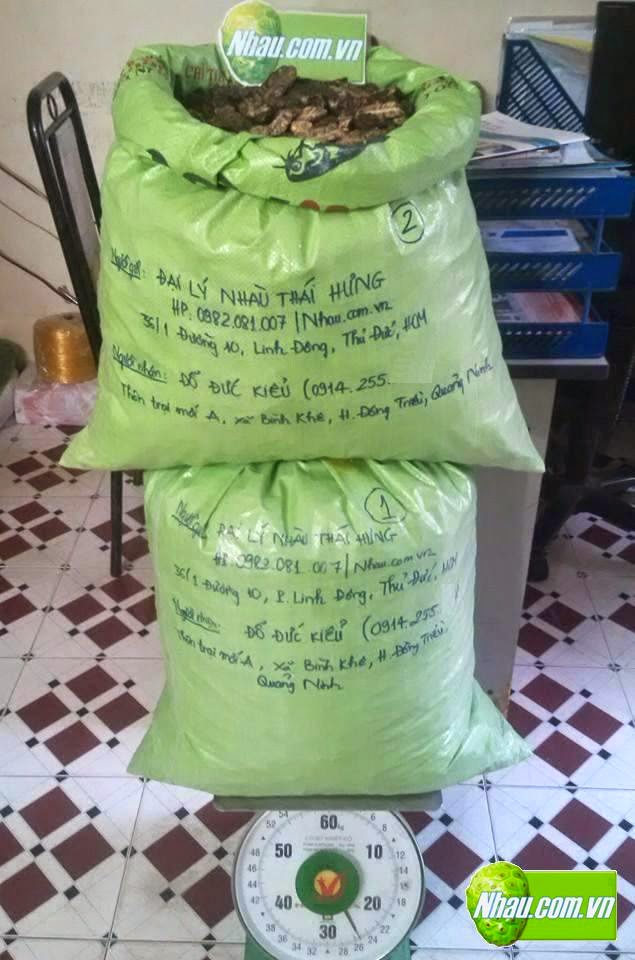 Nhau.com.vn
2
Người gởi: ĐẠI LÝ NHÀU THÁI HƯNG
HP. 0982.081.007 / Nhau.com.vn
36/1 Đường 10, Linh Đông, Thủ Đức, HCM
Người nhận: ĐỖ ĐỨC KIỂU (0914.255.
Thôn trại mới A, xã Bình Khê, H. Đông Triều, Quảng Ninh
1
Người gởi: ĐẠI LÝ NHÀU THÁI HƯNG
HP. 0982.081.007 / Nhau.com.vn
36/1 Đường 10, P. Linh Đông, Thủ Đức, HCM
Người nhận: ĐỖ ĐỨC KIỂU (0914.255.
Thôn trại mới A, xã Bình Khê, H. Đông Triều,
Quảng Ninh
60 kg
50 10
40 20
30
Nhau.com.vn